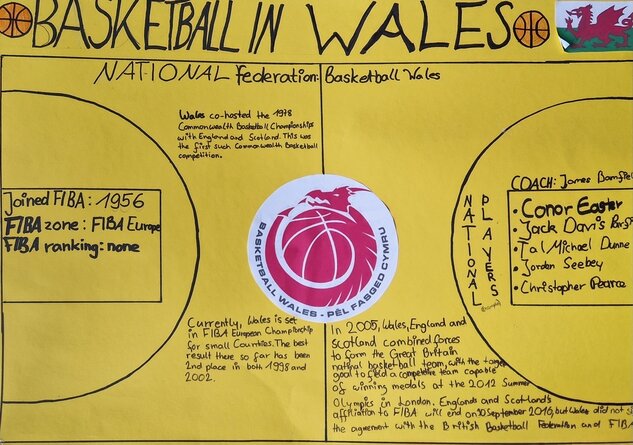 BASKETBALL IN WALES
NATIONAL federation: Basketball Wales
Wales co-hosted the 1978
Commonwealth Basketball Championships
with England and Scotland. This was
the first such Commonwealth Basketball
competition.
Joined FIBA: 1956
FIBA zone: FIBA Europe
FIBA ranking: none
BASKETBALL WALES - PÊL FASGED CYMRU
NATIONAL
PLAYERS
COACH: James Bamfiel
• Conor Easter
• Jack Davis
• Tal Michael Dunne
• Jordan Seebey
• Christopher Pearce
Currently, Wales is set
in FIBA European Championship
for small Countries. The best
result there so far has been
2nd place in both 1998 and
2002.
In 2005, Wales, England and
Scotland combined forces
to form the Great Britain
national basketball team, with the target
goal to field a competitive team capable
of winning medals at the 2012 Summer
Olympics in London. Englands and Scotland's
affiliation to FIBA will end on 30 September 2016, but Wales did not
the agreement with the British Basketball Federation and FIBA